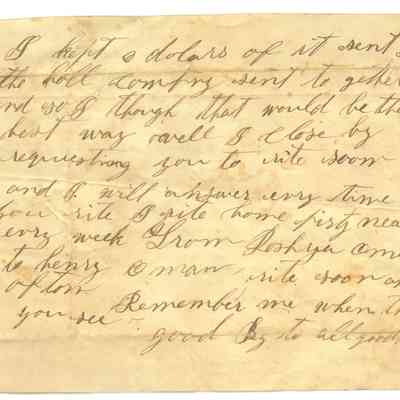 I kept 2 dolars of it sent
the holl Compny sent to gether
and so I though that would be the
best way well I close by
requesting you to rite soon
and I will answer evry time
you rite I rite home pirty near
evry week From Joshua
to henry Oman rite soon
often
you see Remember me when
good By to all good